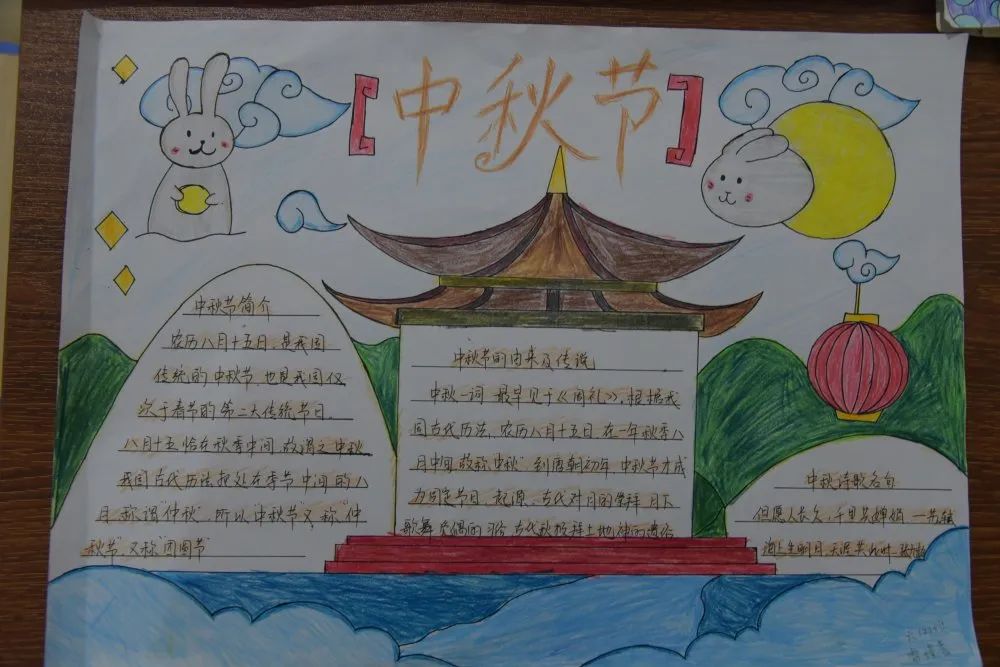 中秋节
中秋节简介
农历八月十五日,是我国
传统的中秋节,也是我国仅
次于春节的第二大传统节日.
八月十五恰在秋季中间,故谓之中秋
我国古代历法把处在季节中间的八
月,称谓"仲秋",所以中秋节又称"仲
秋节"又称"团圆节"
中秋节的由来及传说
中秋一词,最早见于《周礼》,根据我
国古代历法,农历八月十五日,在一年秋季八
月中间,故称"中秋"到唐朝初年,中秋节才成
为固定节日.起源,古代对月的崇拜,月下
歌舞 觅偶的习俗,古代秋报拜土地神的遗俗
中秋诗歌名句
但愿人长久,千里共婵娟 —苏轼
海上生明月,天涯共此时—张九龄